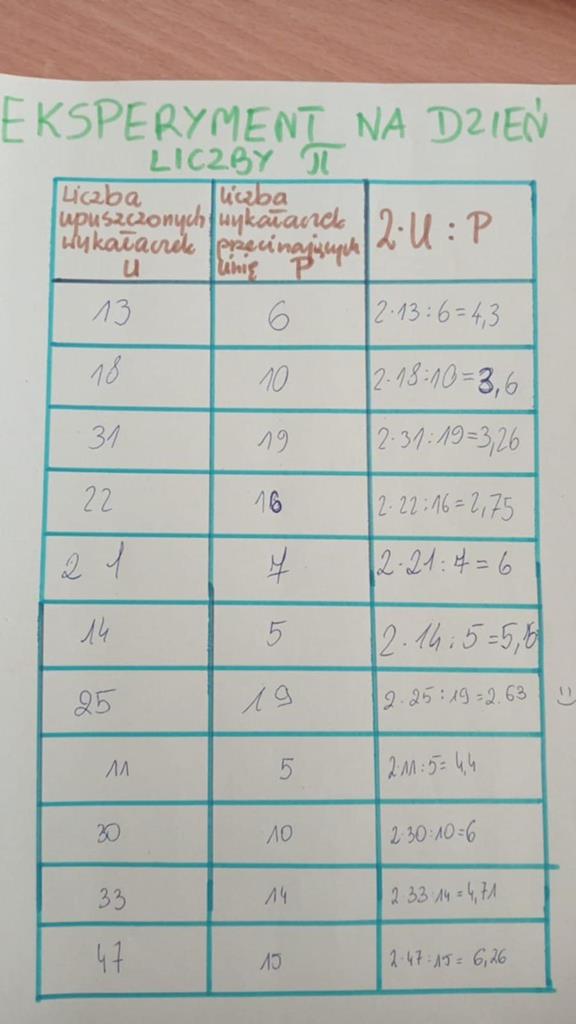 EKSPERYMENT NA DZIEŃ
LICZBY π
Liczba
upuszczonych
wykałaczek
U
Liczba
wykałaczek
przecinających
linię P
2·U : P
13
6
2·13:6=4,3
18
10
2·18:10=3,6
31
19
2·31:19=3,26
22
16
2·22:16=2,75
21
7
2·21:7=6
14
5
2·14:5=5,6
25
19
2·25:19=2.63
11
5
2·11:5=4,4
30
10
2·30:10=6
33
14
2·33:14=4,71
47
15
2·47:15=6,26